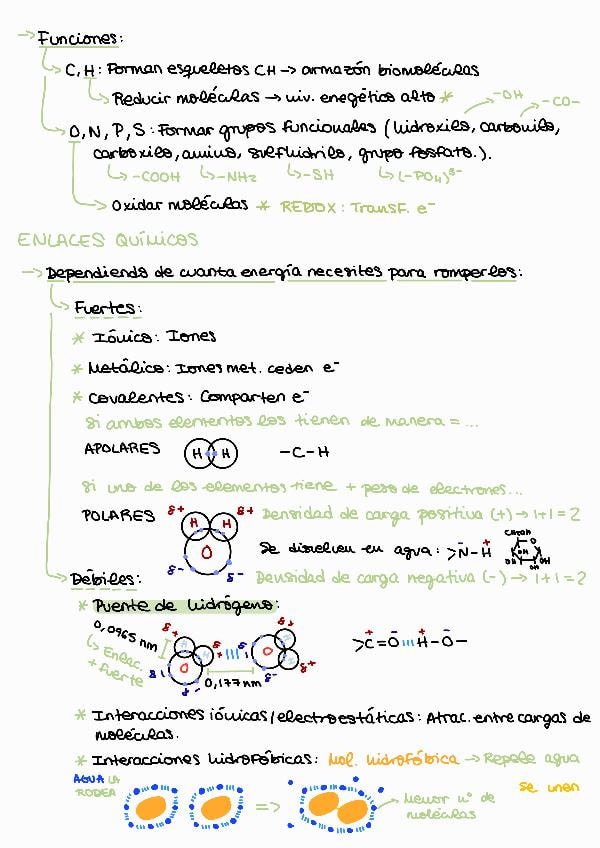 → Funciones:
C, H: Forman esqueletos CH → armazón biomoléculas
Reducir moléculas → niv. enegético alto *
-OH
-CO-
O, N, P, S: Formar grupos funcionales (hidroxilo, carbonilo,
carboxilo, amino, sulfhidrilo, grupo fosfato.).
-COOH -NH2 -SH (-PO4)3-
Oxidar moléculas * REDOX: Transf. e-
ENLACES QUÍMICOS
→ Dependiendo de cuanta energía necesites para romperlos:
Fuertes:
* Iónico: Iones
* Metálico: Iones met. ceden e-
* Covalentes: Comparten e-
Si ambos elementos los tienen de manera = ...
APOLARES H H -C-H
Si uno de los elementos tiene + peso de electrones...
POLARES δ+ δ+ Densidad de carga positiva (+) → 1+1=2
H H
O
Se disuelven en agua: >N-H
- +
CH2OH
O
OH OH
δ- δ- Densidad de carga negativa (-) → 1+1=2
Débiles:
* Puente de hidrógeno:
0,0965 nm
Enlac.
+ fuerte
δ+ δ+ δ- δ+ δ+ δ- δ-
O O
0,177 nm
>C=O ||| H-O-
+ - + -
* Interacciones iónicas/electroestáticas: Atrac. entre cargas de
moléculas.
* Interacciones hidrofóbicas: Mol. hidrofóbica → Repele agua
AGUA LA
RODEA
=>
Se unen
Menor nº de
moléculas